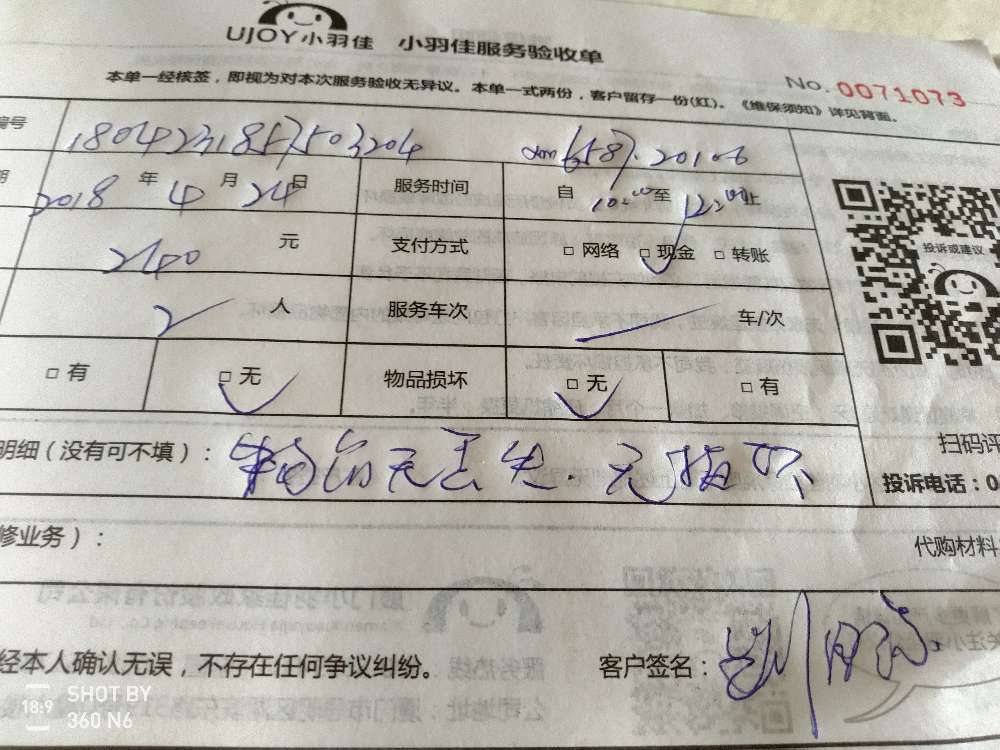 UJOY小羽佳 小羽佳服务验收单
本单一经核签，即视为对本次服务验收无异议。本单一式两份，客户留存一份(红)。《维保须知》详见背面。
No. 0071073
编号 1804231857503204
2018 年 4 月 24 日 服务时间 自 10:00 至 12:00 止
2400 元 支付方式 □ 网络 □ 现金 □ 转账
2 人 服务车次 车/次
□ 有 □ 无 物品损坏 □ 无 □ 有
投诉或建议
明细(没有可不填)： 物品无丢失.无损坏
扫码评
投诉电话：0
修业务)：
代购材料
经本人确认无误，不存在任何争议纠纷。 客户签名：
18:9 SHOT BY
360 N6